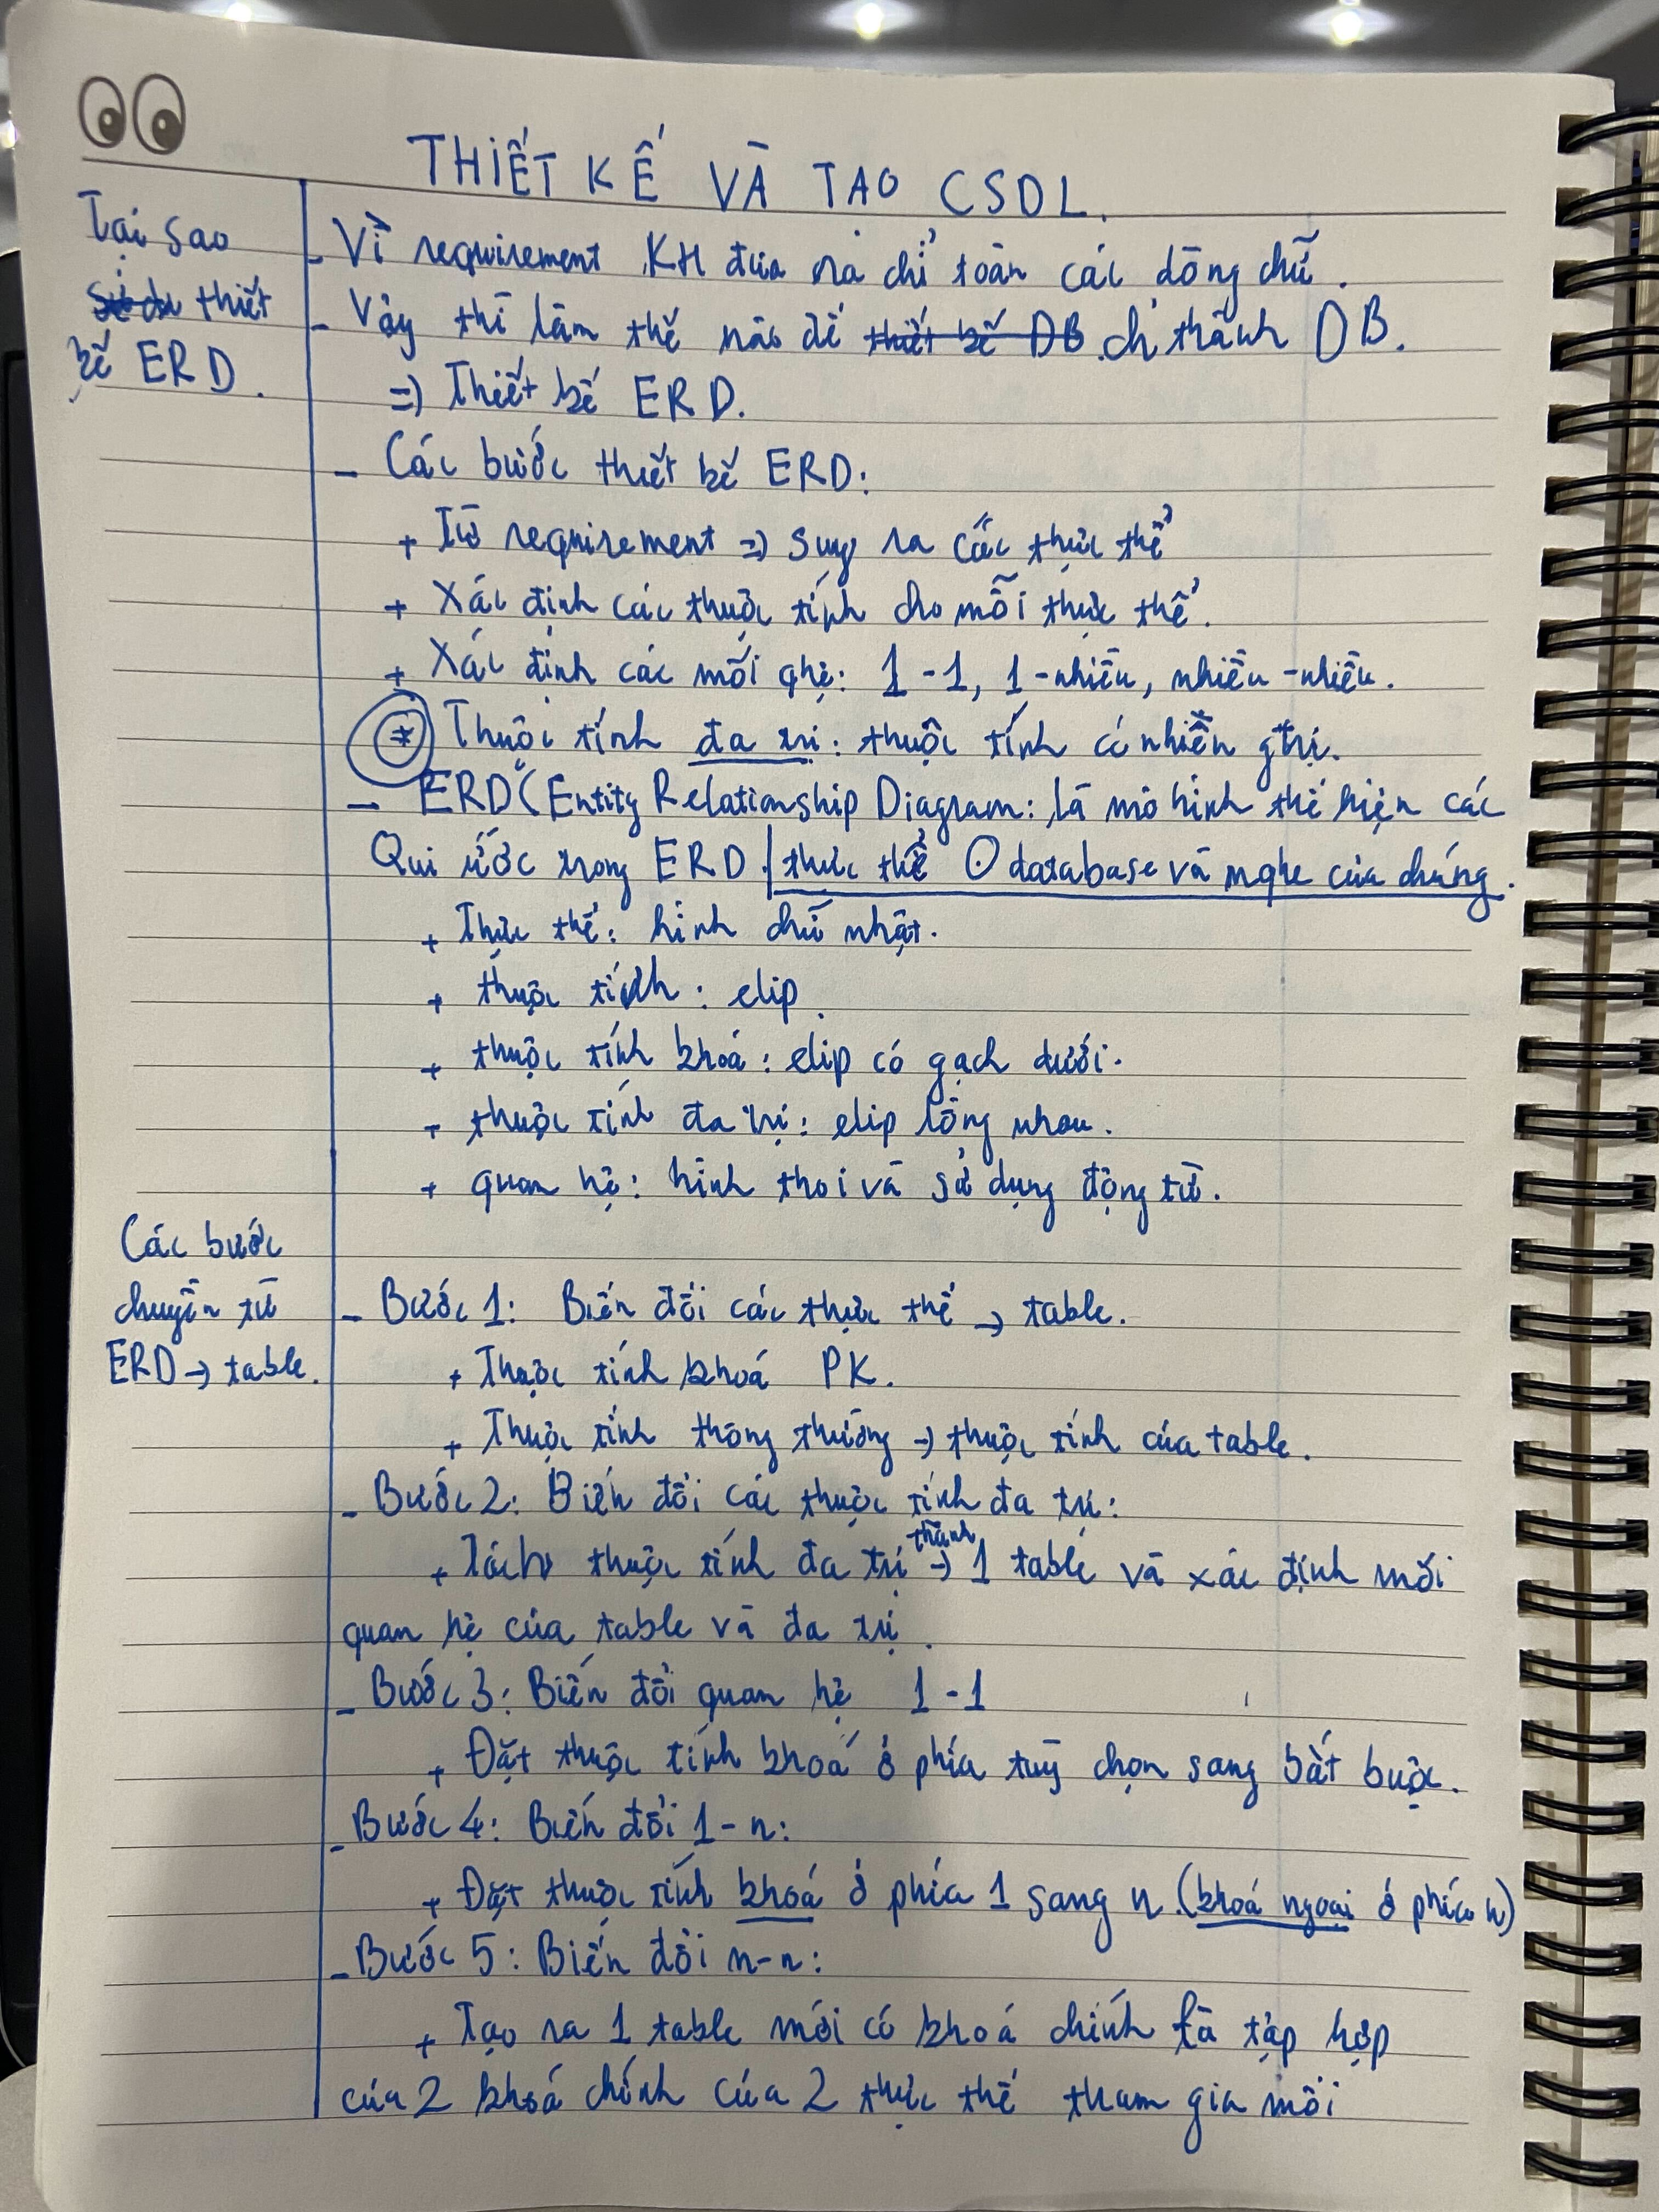 THIẾT KẾ VÀ TẠO CSDL.
Tại sao
thiết
kế ERD.
- Vì requirement KH đưa ra chỉ toàn các dòng chữ.
- Vậy thì làm thế nào để thiết kế DB ch thành DB.
=> Thiết kế ERD.
- Các bước thiết kế ERD:
+ Từ requirement => suy ra các thực thể
+ Xác định các thuộc tính cho mỗi thực thể.
+ Xác định các mối qhệ: 1-1, 1-nhiều, nhiều-nhiều.
* Thuộc tính đa trị: thuộc tính có nhiều gtrị.
- ERD (Entity Relationship Diagram: là mô hình thể hiện các
thực thể database và mqhe của chúng.
Qui ước trong ERD
+ Thực thể: hình chữ nhật.
+ thuộc tính: elip.
+ thuộc tính khoá: elip có gạch dưới.
+ thuộc tính đa trị: elip lồng nhau.
+ quan hệ: hình thoi và sử dụng động từ.
Các bước
chuyển từ
ERD → table.
- Bước 1: Biến đổi các thực thể → table.
+ Thuộc tính khoá PK.
+ Thuộc tính thông thường → thuộc tính của table.
- Bước 2: Biến đổi các thuộc tính đa trị:
+ Tách thuộc tính đa trị thành → 1 table và xác định mối
quan hệ của table và đa trị.
- Bước 3: Biến đổi quan hệ 1-1
+ Đặt thuộc tính khoá ở phía tuỳ chọn sang bắt buộc.
- Bước 4: Biến đổi 1-n:
+ Đặt thuộc tính khoá ở phía 1 sang n. (khoá ngoại ở phía n)
- Bước 5: Biến đổi n-n:
+ Tạo ra 1 table mới có khoá chính là tập hợp
của 2 khoá chính của 2 thực thể tham gia mối